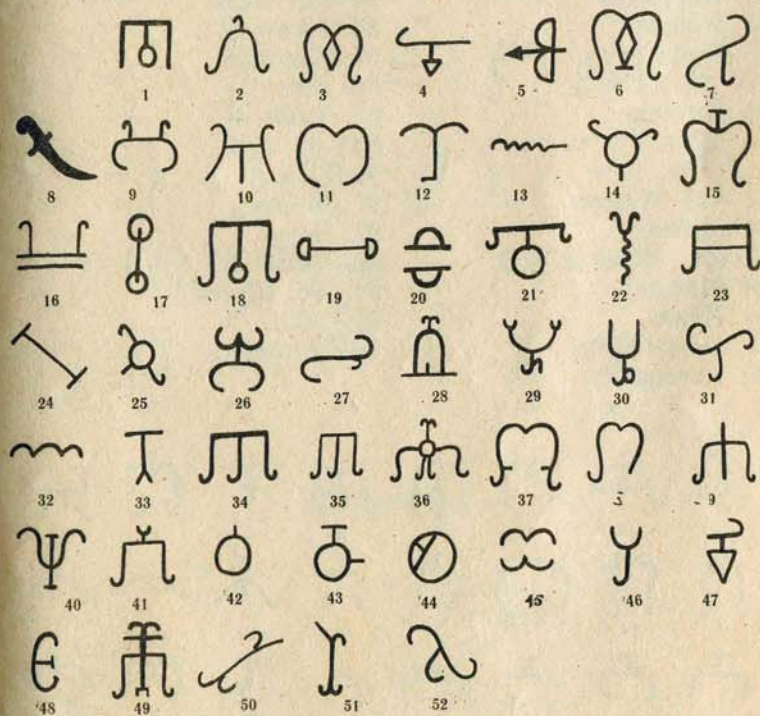 1 2 3 4 5 6 7
8 9 10 11 12 13 14 15
16 17 18 19 20 21 22 23
24 25 26 27 28 29 30 31
32 33 34 35 36 37 3 9
40 41 42 43 44 45 46 47
48 49 50 51 52